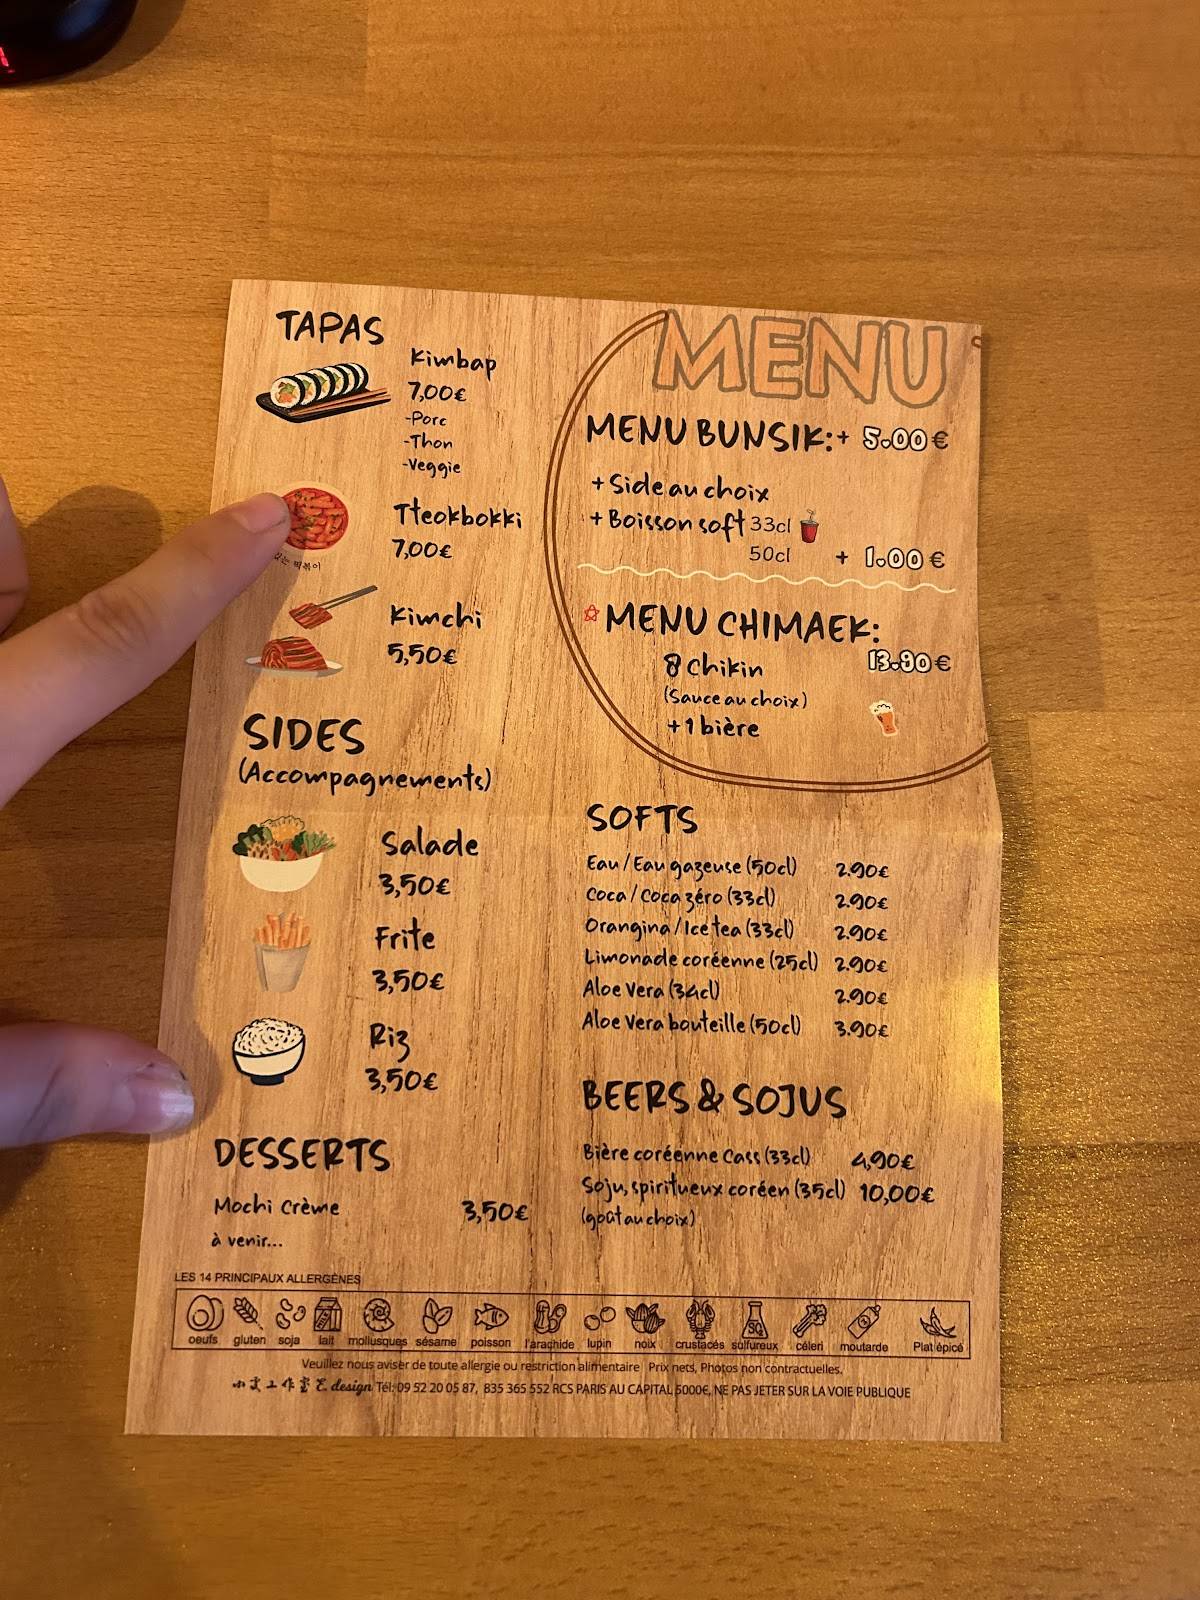 TAPAS
Kimbap
7,00€
-Porc
-Thon
-Veggie
Tteokbokki
7,00€
떡볶이
Kimchi
5,50€
SIDES
(Accompagnements)
Salade
3,50€
Frite
3,50€
Riz
3,50€
DESSERTS
Mochi Crème 3,50€
à venir...
MENU
MENU BUNSIK: + 5.00€
+ Side au choix
+ Boisson soft 33cl
50cl + 1.00€
MENU CHIMAEK:
13.90€
8 Chikin
(Sauce au choix)
+1 bière
SOFTS
Eau / Eau gazeuse (50cl) 2.90€
Coca / Coca zéro (33cl) 2.90€
Orangina / Ice tea (33cl) 2.90€
Limonade coréenne (25cl) 2.90€
Aloe Vera (34cl) 2.90€
Aloe Vera bouteille (50cl) 3.90€
BEERS & SOJUS
Bière coréenne Cass (33cl) 4,90€
Soju, spiritueux coréen (35cl) 10,00€
(goût au choix)
LES 14 PRINCIPAUX ALLERGÈNES
oeufs gluten soja lait mollusques sésame poisson l'arachide lupin noix crustacés sulfureux céleri moutarde Plat épicé
Veuillez nous aviser de toute allergie ou restriction alimentaire Prix nets, Photos non contractuelles.
design Tél: 09 52 20 05 87, 835 365 552 RCS PARIS AU CAPITAL 5000€, NE PAS JETER SUR LA VOIE PUBLIQUE